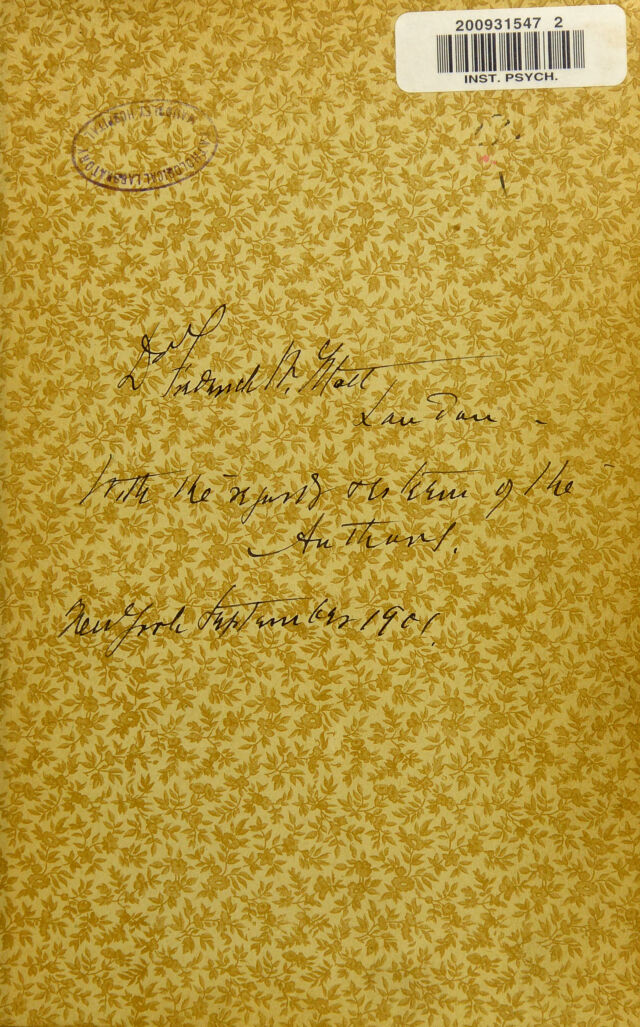 200931547 2
INST. PSYCH.
MAUDSLEY HOSPITAL
LABORATORY
Dr Frederick W. Mott
London -
With the regards & esteem of the
Authors.
New York September 1901.